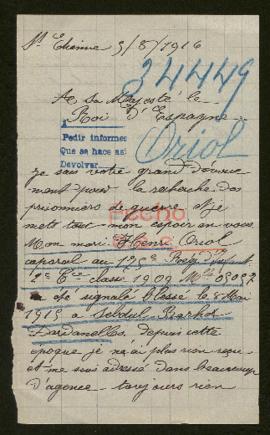 St Etienne 5/8/1916
34449
A Sa Majesté le
Roi d'Espagne
Pedir informes
Que se hace así
Devolver
Oriol
je sais votre grand dévoue
ment pour la recherche des
prisonniers de guerre et je
mets tout mon espoir en vous
FECHO
Mon mari Henri Oriol
caporal au 175e Reg d'infant
2e Cie classe 1909 Mle
a été signalé blessé le 8 Mai
1915 a Seddul Barhr
Dardanelles, depuis cette
époque je n'ai plus rien reçu
et me suis adressé dans beaucoup
d'agence toujours rien